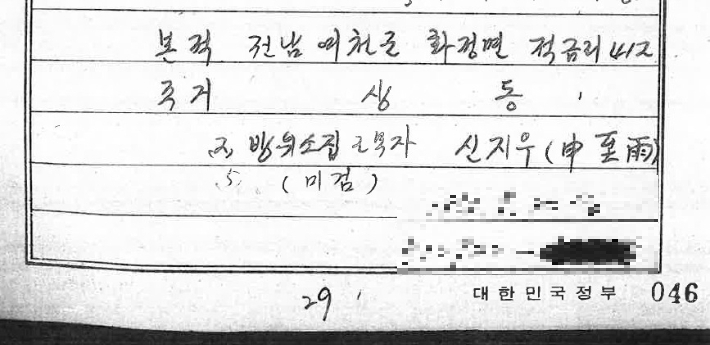 본적 전남 여천군 화정면 적금리 412
주거 상 동
방위소집 근무자 신지우(申至雨)
5. (미검)
29
대한민국정부 046